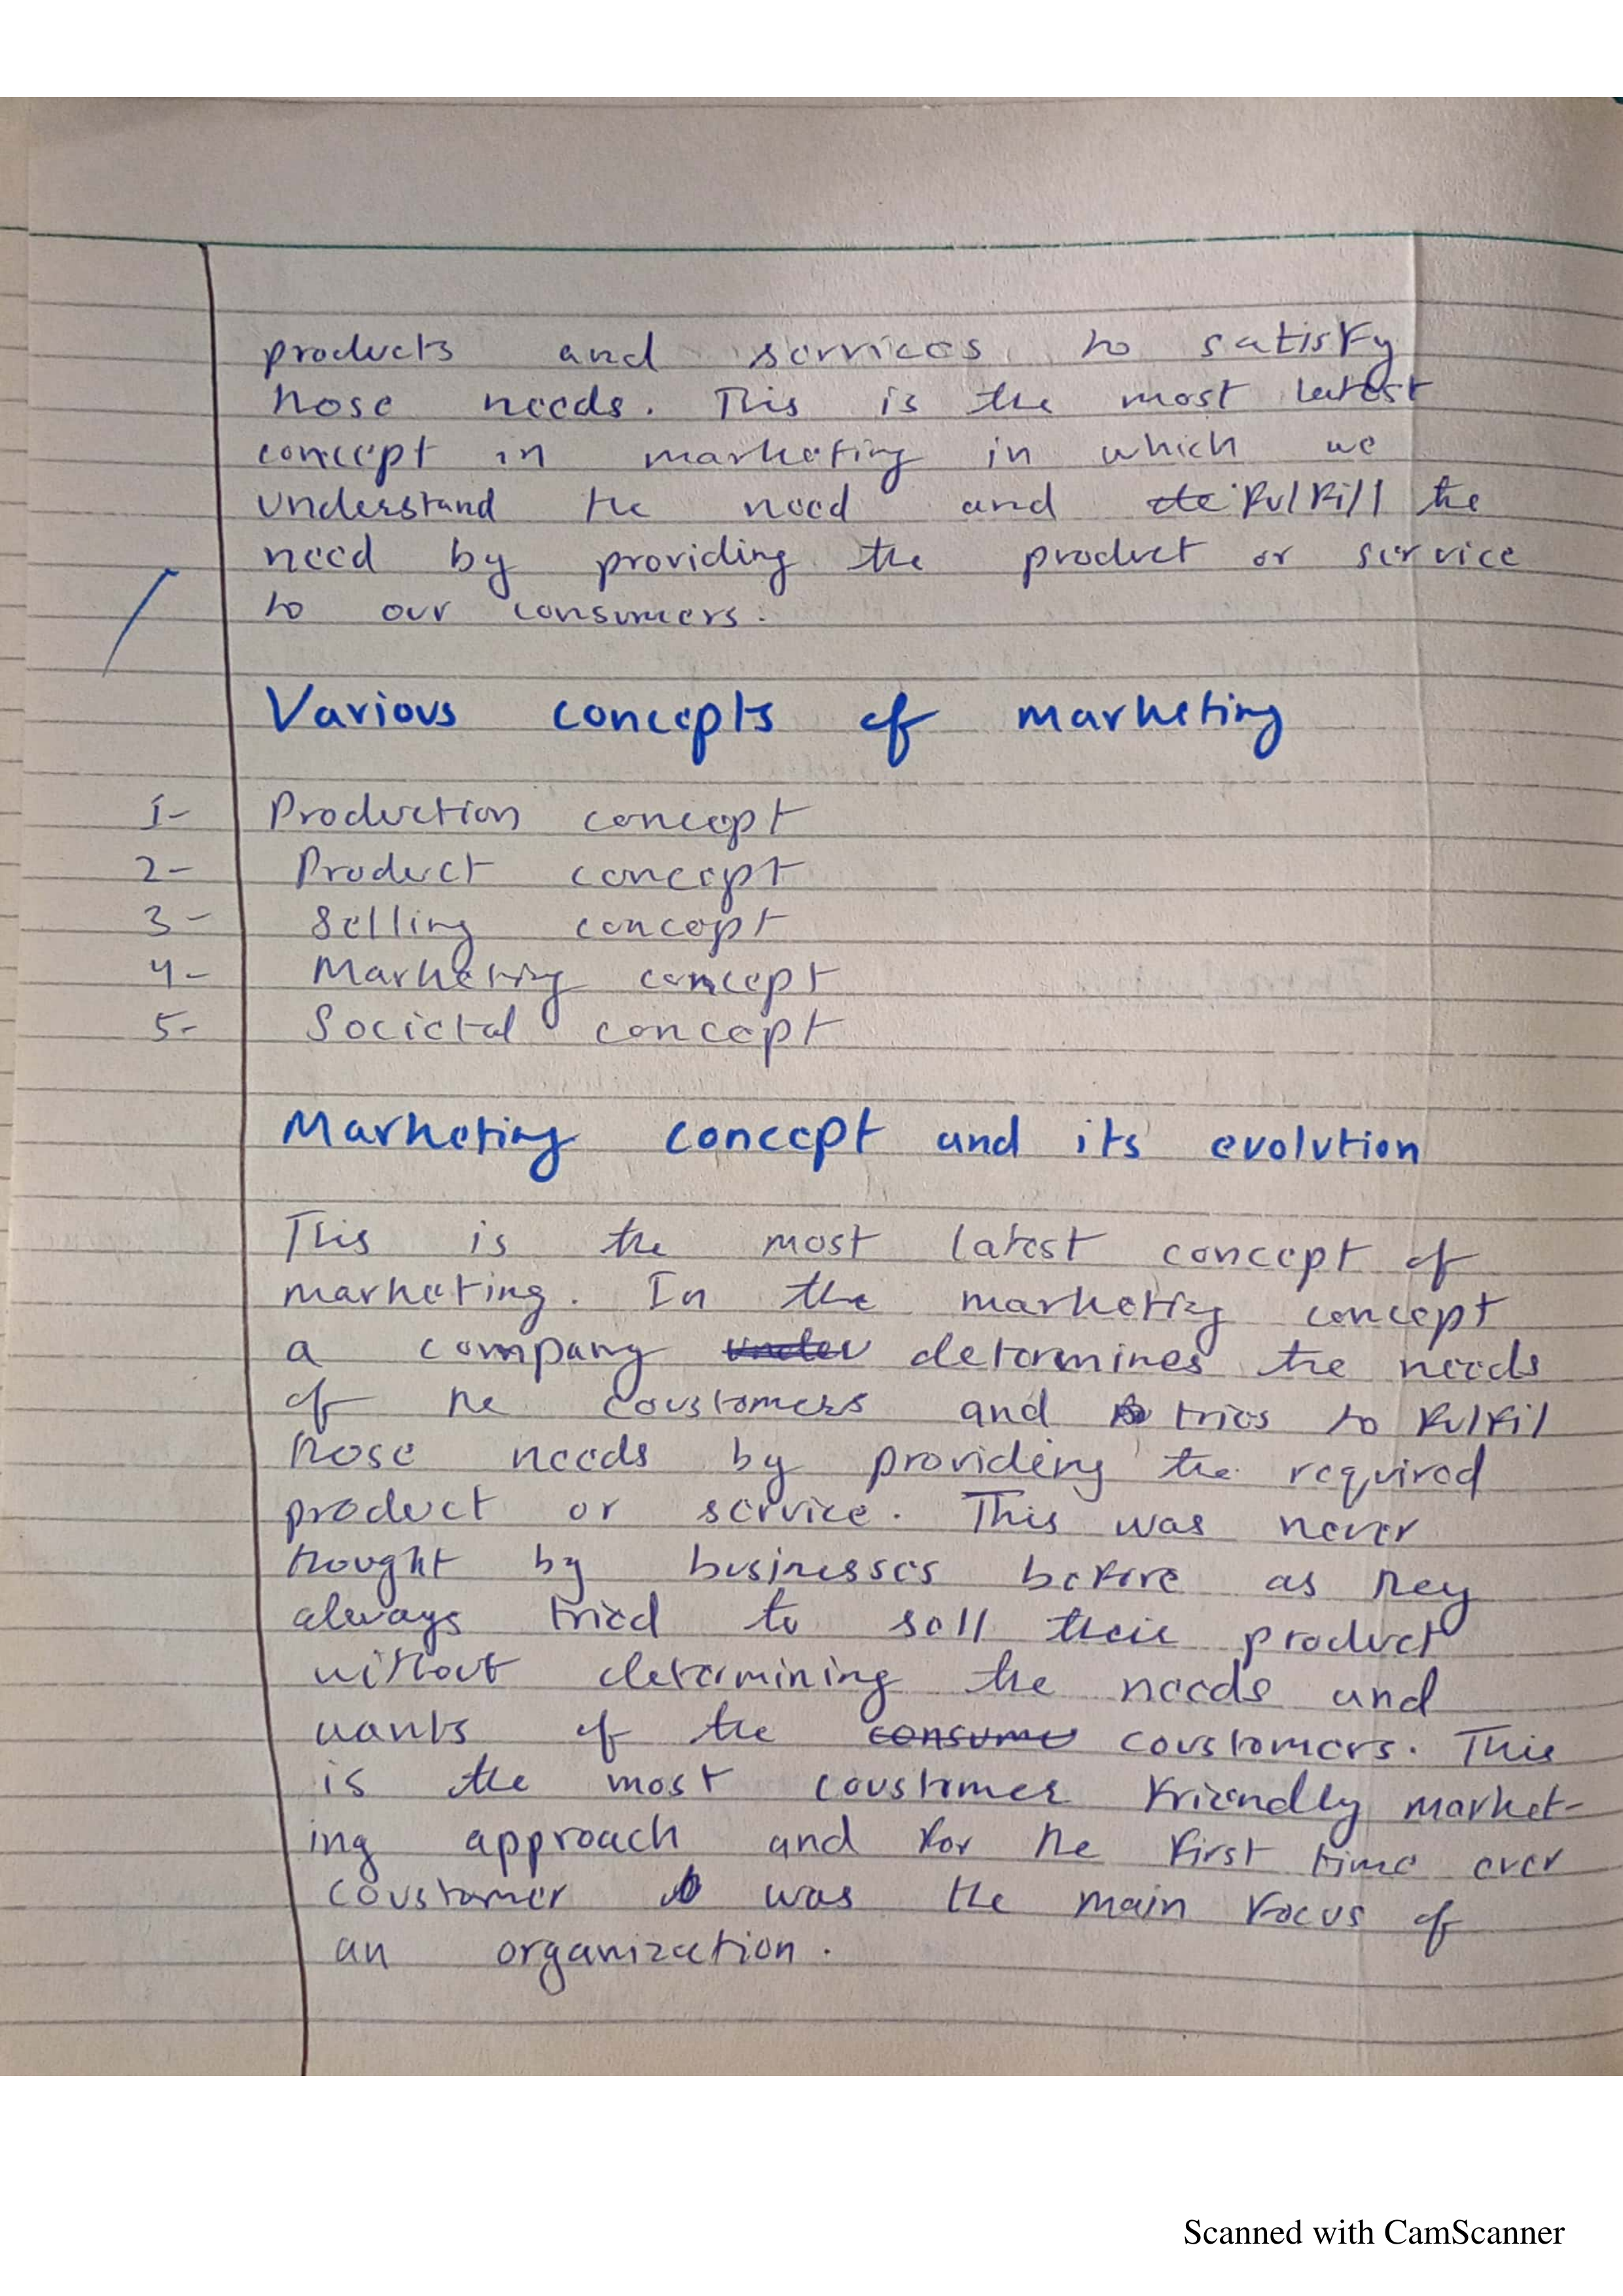 products and services to satisfy
those needs. This is the most latest
concept in marketing in which we
understand the need and fulfill the
need by providing the product or service
to our consumers.
Various concepts of marketing
1- Production concept
2- Product concept
3- Selling concept
4- Marketing concept
5- Societal concept
Marketing concept and its evolution
This is the most latest concept of
marketing. In the marketing concept
a company determines the needs
of the coustomers and tries to fulfil
those needs by providing the required
product or service. This was never
thought by businesses before as they
always tried to sell their product
without determining the needs and
wants of the consume coustomers. This
is the most coustomer friendly market-
ing approach and for the first time ever
coustomer was the main focus of
an organization.
Scanned with CamScanner